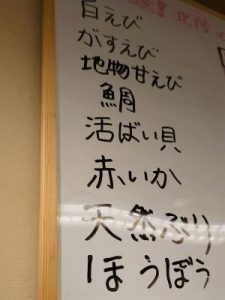 北陸の
白えび
がすえび
地物甘えび
鯛
活ばい貝
赤いか
天然ぶり
ほうぼう